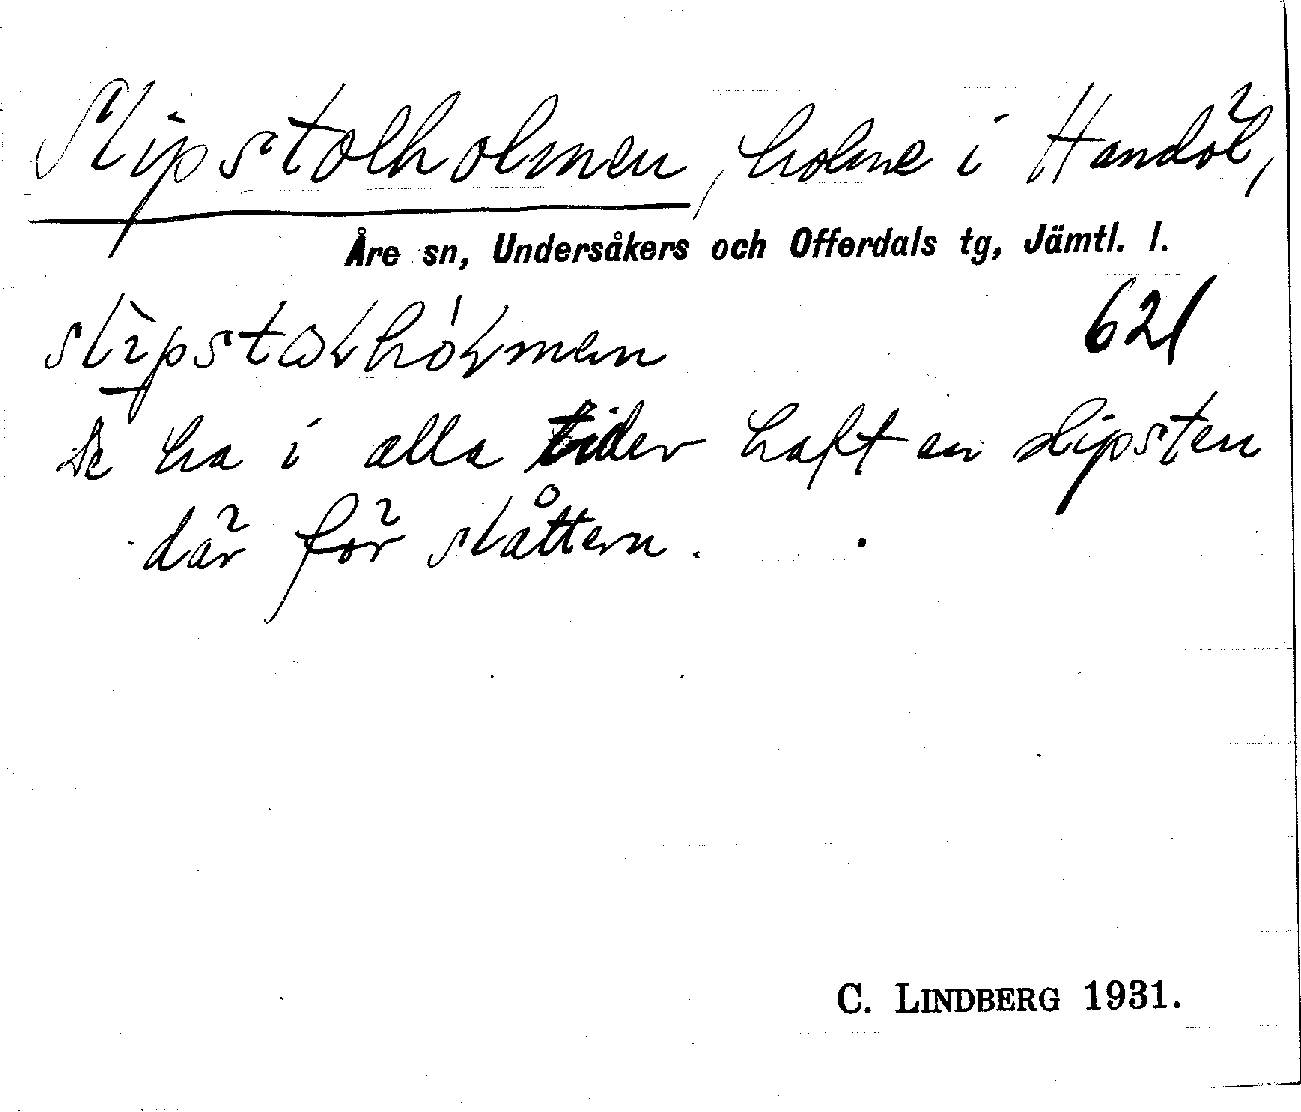 Slipstolholmen, holme i Handöl,
Åre sn, Undersåkers och Offerdals tg, Jämtl. l.
621
De ha i alla tider haft en slipsten
där för slåttern.
C. LINDBERG 1931.